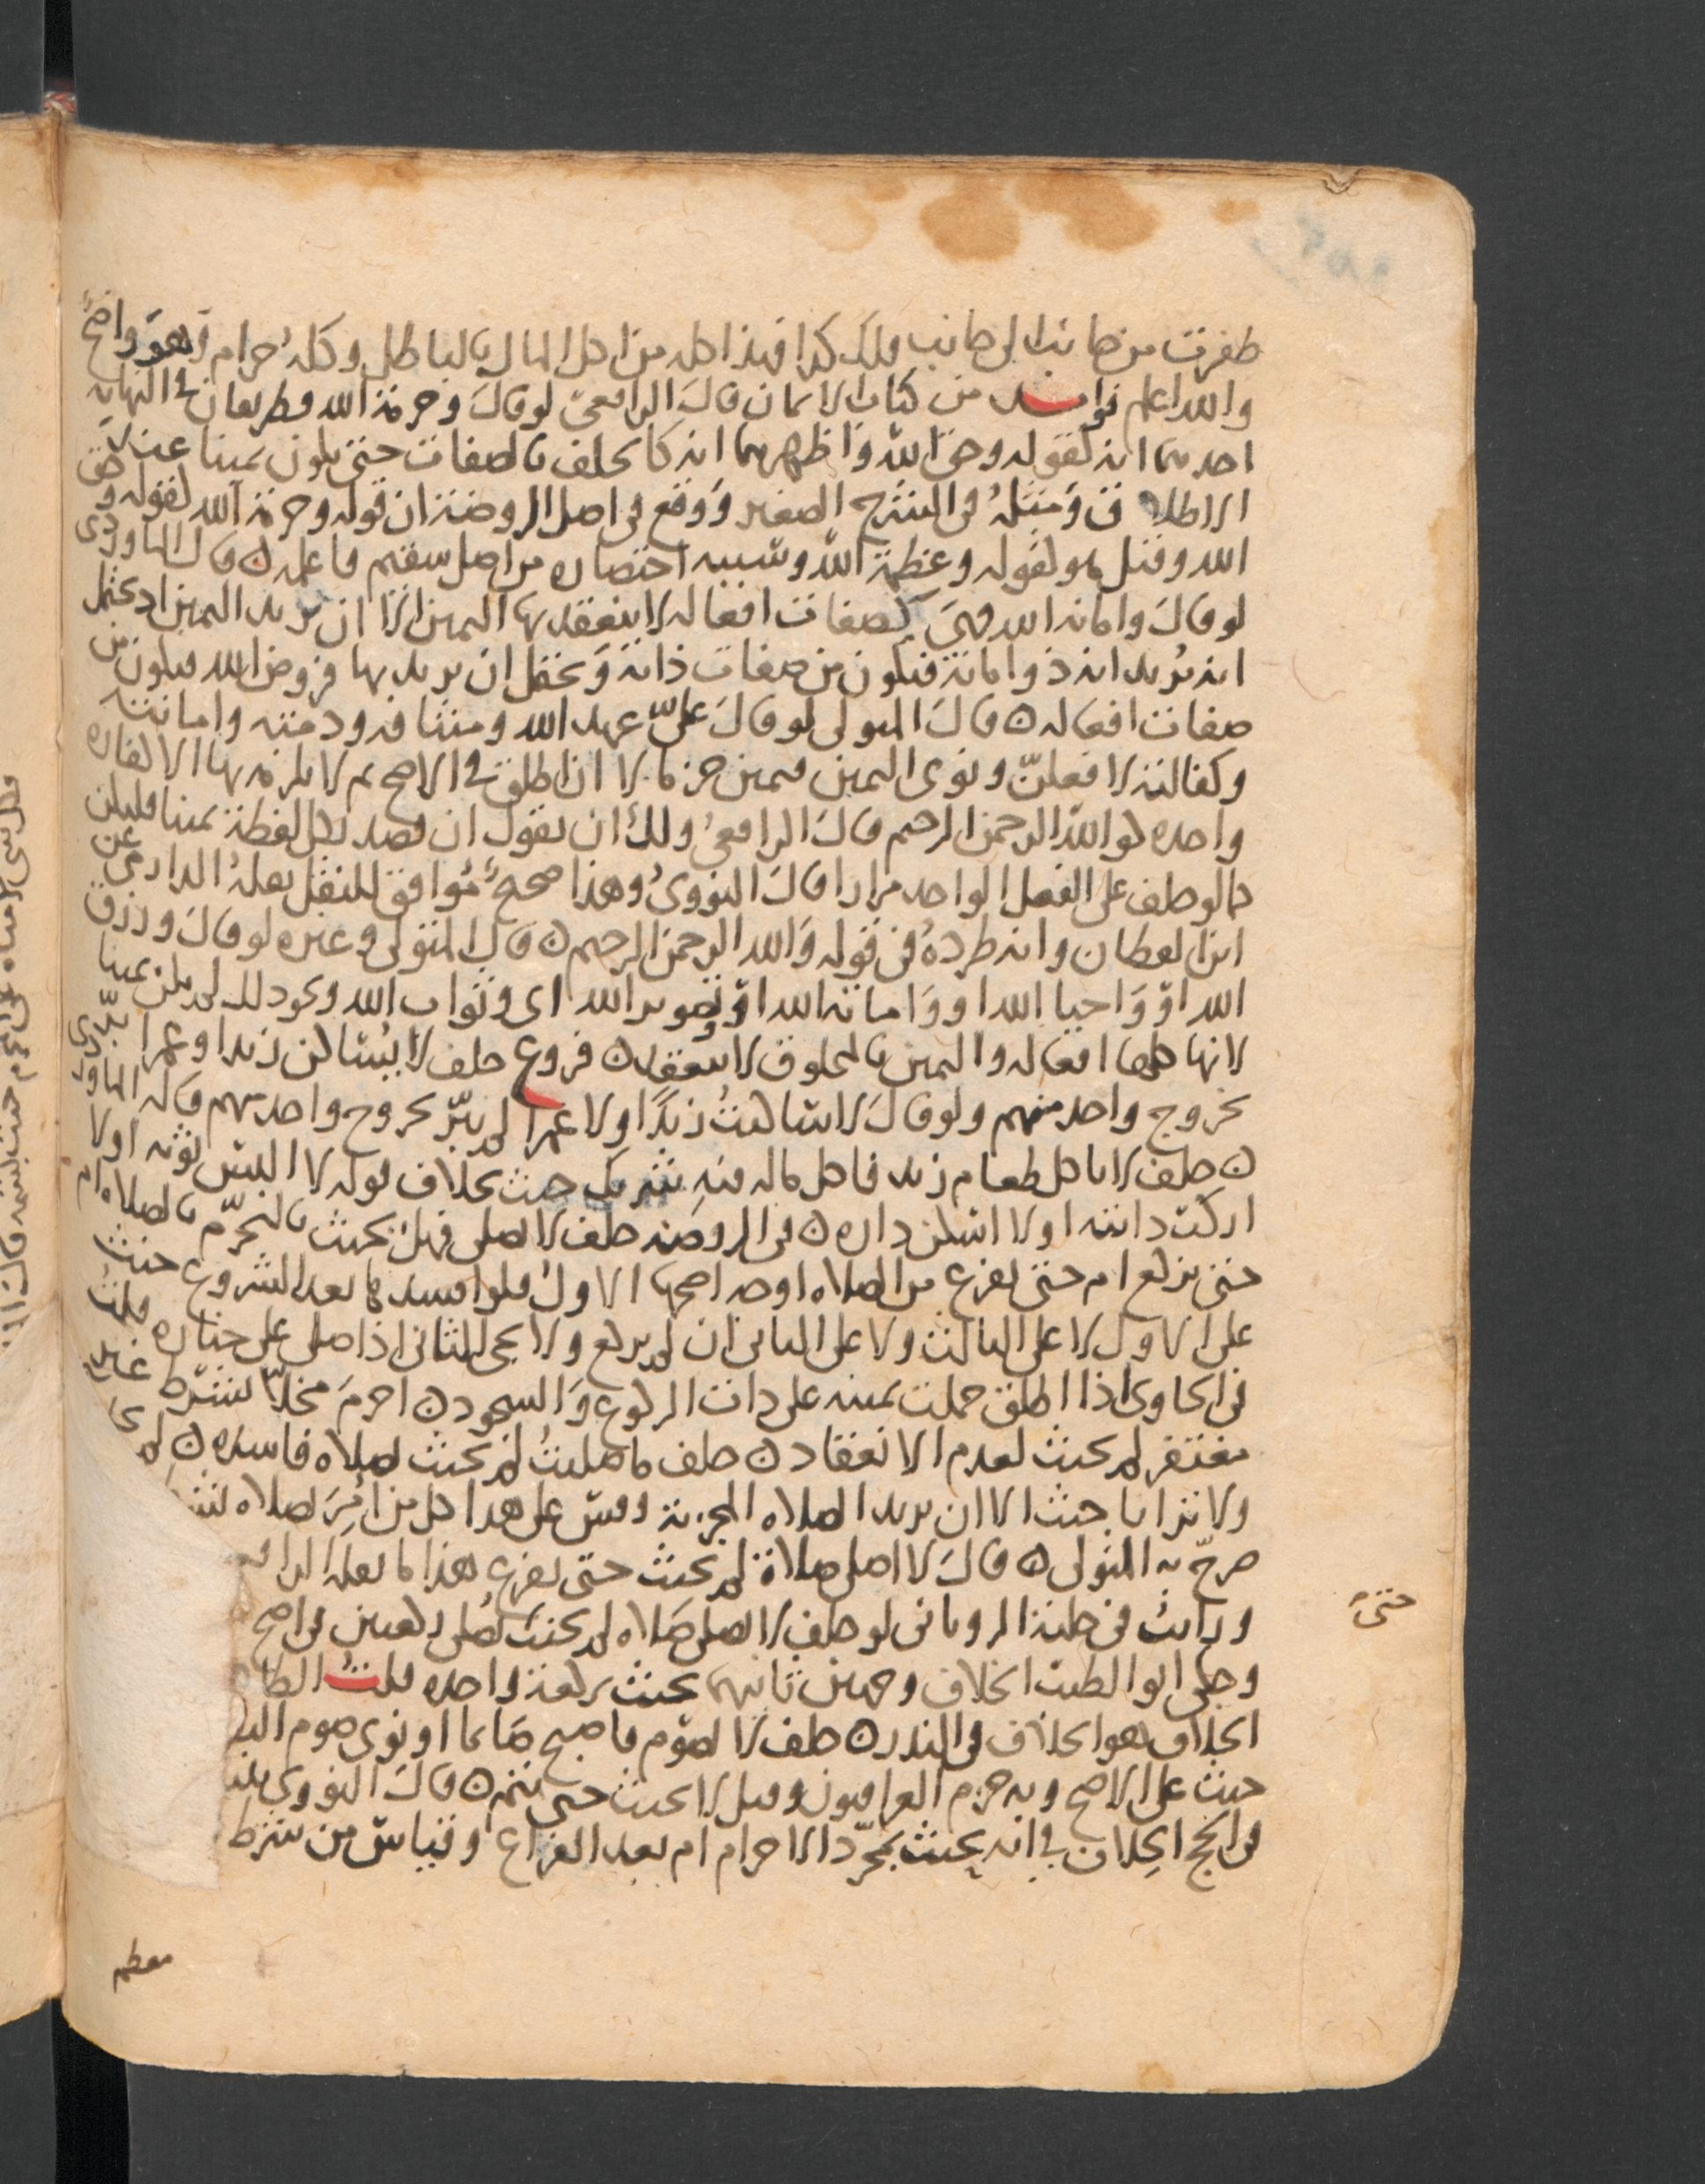 طفرت من جانب الى جانب فلك كذا فهذا كله من اكل المال بالباطل وكله حرام وهو واضح
والله اعلم فوايد من كتاب الايمان قال الرافعي لو قال وحرمة الله فطريقان في النهاية
احدهما انه كقوله وحق الله واظهرهما انه كالحلف بالصفات حتى يكون يمينا عند
الاطلاق ومثله في الشرح الصغير ووقع في اصل الروضة ان قوله وحرمة الله كقوله وحق
الله وقيل هو كقوله وعظمة الله وسببه اختصاره من اصل سقيم فاعلمه ن قال الماوردي
لو قال وامانة الله فهي كصفات افعاله لا ينعقد بها اليمين الا ان يريد اليمين اد يحتمل
انه يريد انه ذو امانة فتكون من صفات ذاته ويحتمل ان يريد بها فروض الله فيكون من
صفات افعاله ن قال المتولي لو قال علي عهد الله وميثاقه وذمته وامانته
وكفالته لافعلن ونوى اليمين فيمين جزما لا ان اطلق في الاصح ثم لا يلزمه بها الا كفارة
واحدة كوالله الرحمن الرحيم قال الرافعي ولك ان تقول ان قصد بكل لفظة يمينا فليكن
كما لو حلف على الفعل الواحد مرارا قال النووي وهذا صحيح موافق للنقل نقله الدارمي عن
ابن القطان وانه طرده في قوله والله الرحمن الرحيم ن قال المتولي وغيره لو قال ورزق
الله او واحيا الله او واماتة الله او وتصوير الله اي وثواب الله ونحو ذلك لم يكن يمينا
لانها كلها افعاله واليمين بالمخلوق لا تنعقد ن فروع حلف لا يساكن زيدا وعمرا بر
بخروج واحد منهم ولو قال لا ساكنت زيدا ولا عمرا لم يبر بخروج واحد منهم قاله الماوردي
ن حلف لا ياكل طعام زيد فاكل ماله فيه شريك حنث بخلاف قوله لا البس ثوبه اولا
اركب دابته اولا اسكن داره ن في الروضة حلف لا يصلي فهل يحنث بالتحرم بالصلاة ام
حتى يركع ام حتى يفرغ من الصلاة اوجه اصحها الاول فلو افسدها بعد الشروع حنث
على الاول لا على الثالث ولا على الثاني ان لم يركع ولا يجي الثاني اذا صلى على جنازة قلت
في الحاوي اذا اطلق حملت يمينه على ذات الركوع والسجود ن احرم مخلا بشرط غير
مغتفر لم يحنث لعدم الانعقاد ن حلف ما صليت لم يحنث بصلاة فاسدة ن لم
ولا ترابا حنث الا ان يريد الصلاة المجزية وقس على هذا كل من امر بصلاة
صرح به المتولي ن قال لا اصلي صلاة لم يحنث حتى يفرغ هذا ما نقله
ورايت في حلية الروياني لو حلف لا يصلي صلاة لم يحنث يصلي ركعتين في اصح
وحكى ابو الطيب الخلاف وجهين ثانيهما يحنث بركعة واحدة قلت
الخلاف هو الخلاف في النذر ن حلف لا يصوم فاصبح صائما او نوى صوم
حنث على الاصح وبه جزم العراقيون وقيل لا يحنث حتى يتمه ن قال النووي
في الحج الخلاف في انه يحنث بمجرد الاحرام ام بعد الفراغ وقياس من شرط
حتى
معظم